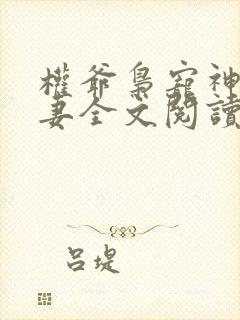 權爺梟寵神
妻全文閱讀
呂堤